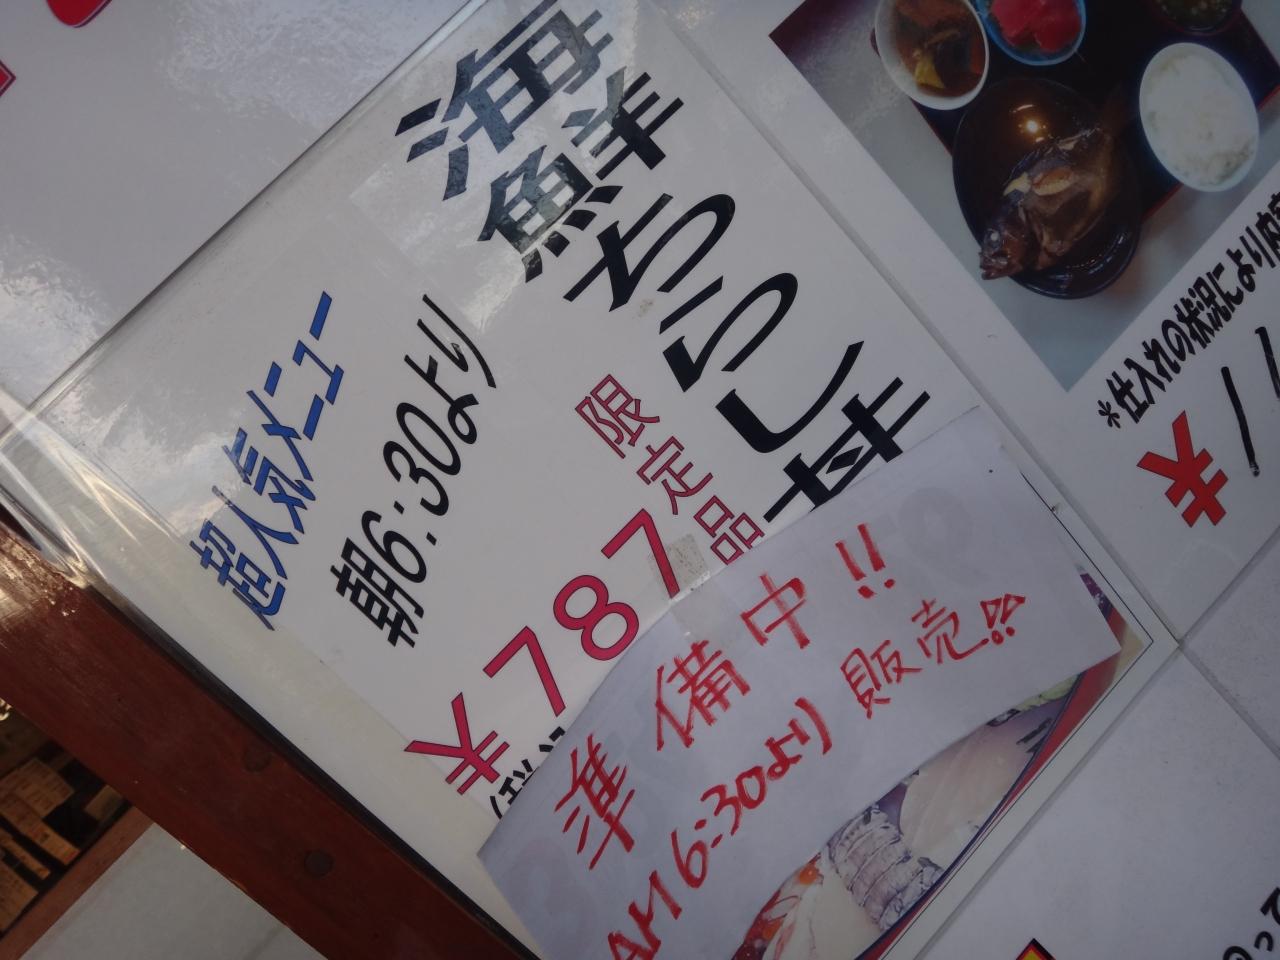 海鮮ちらし丼
限定品
¥787
朝6:30より
超人気メニュー
準備中!!
AM6:30より販売!!
*仕入れの状況により内
¥1
って